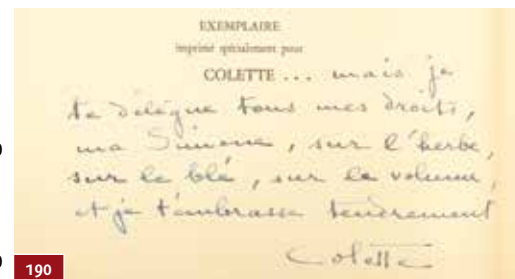 EXEMPLAIRE
imprimé spécialement pour
COLETTE ... mais je
te délègue tous mes droits,
ma Simone, sur l'herbe,
sur le blé, sur le volume,
et je t'embrasse tendrement
Colette
190